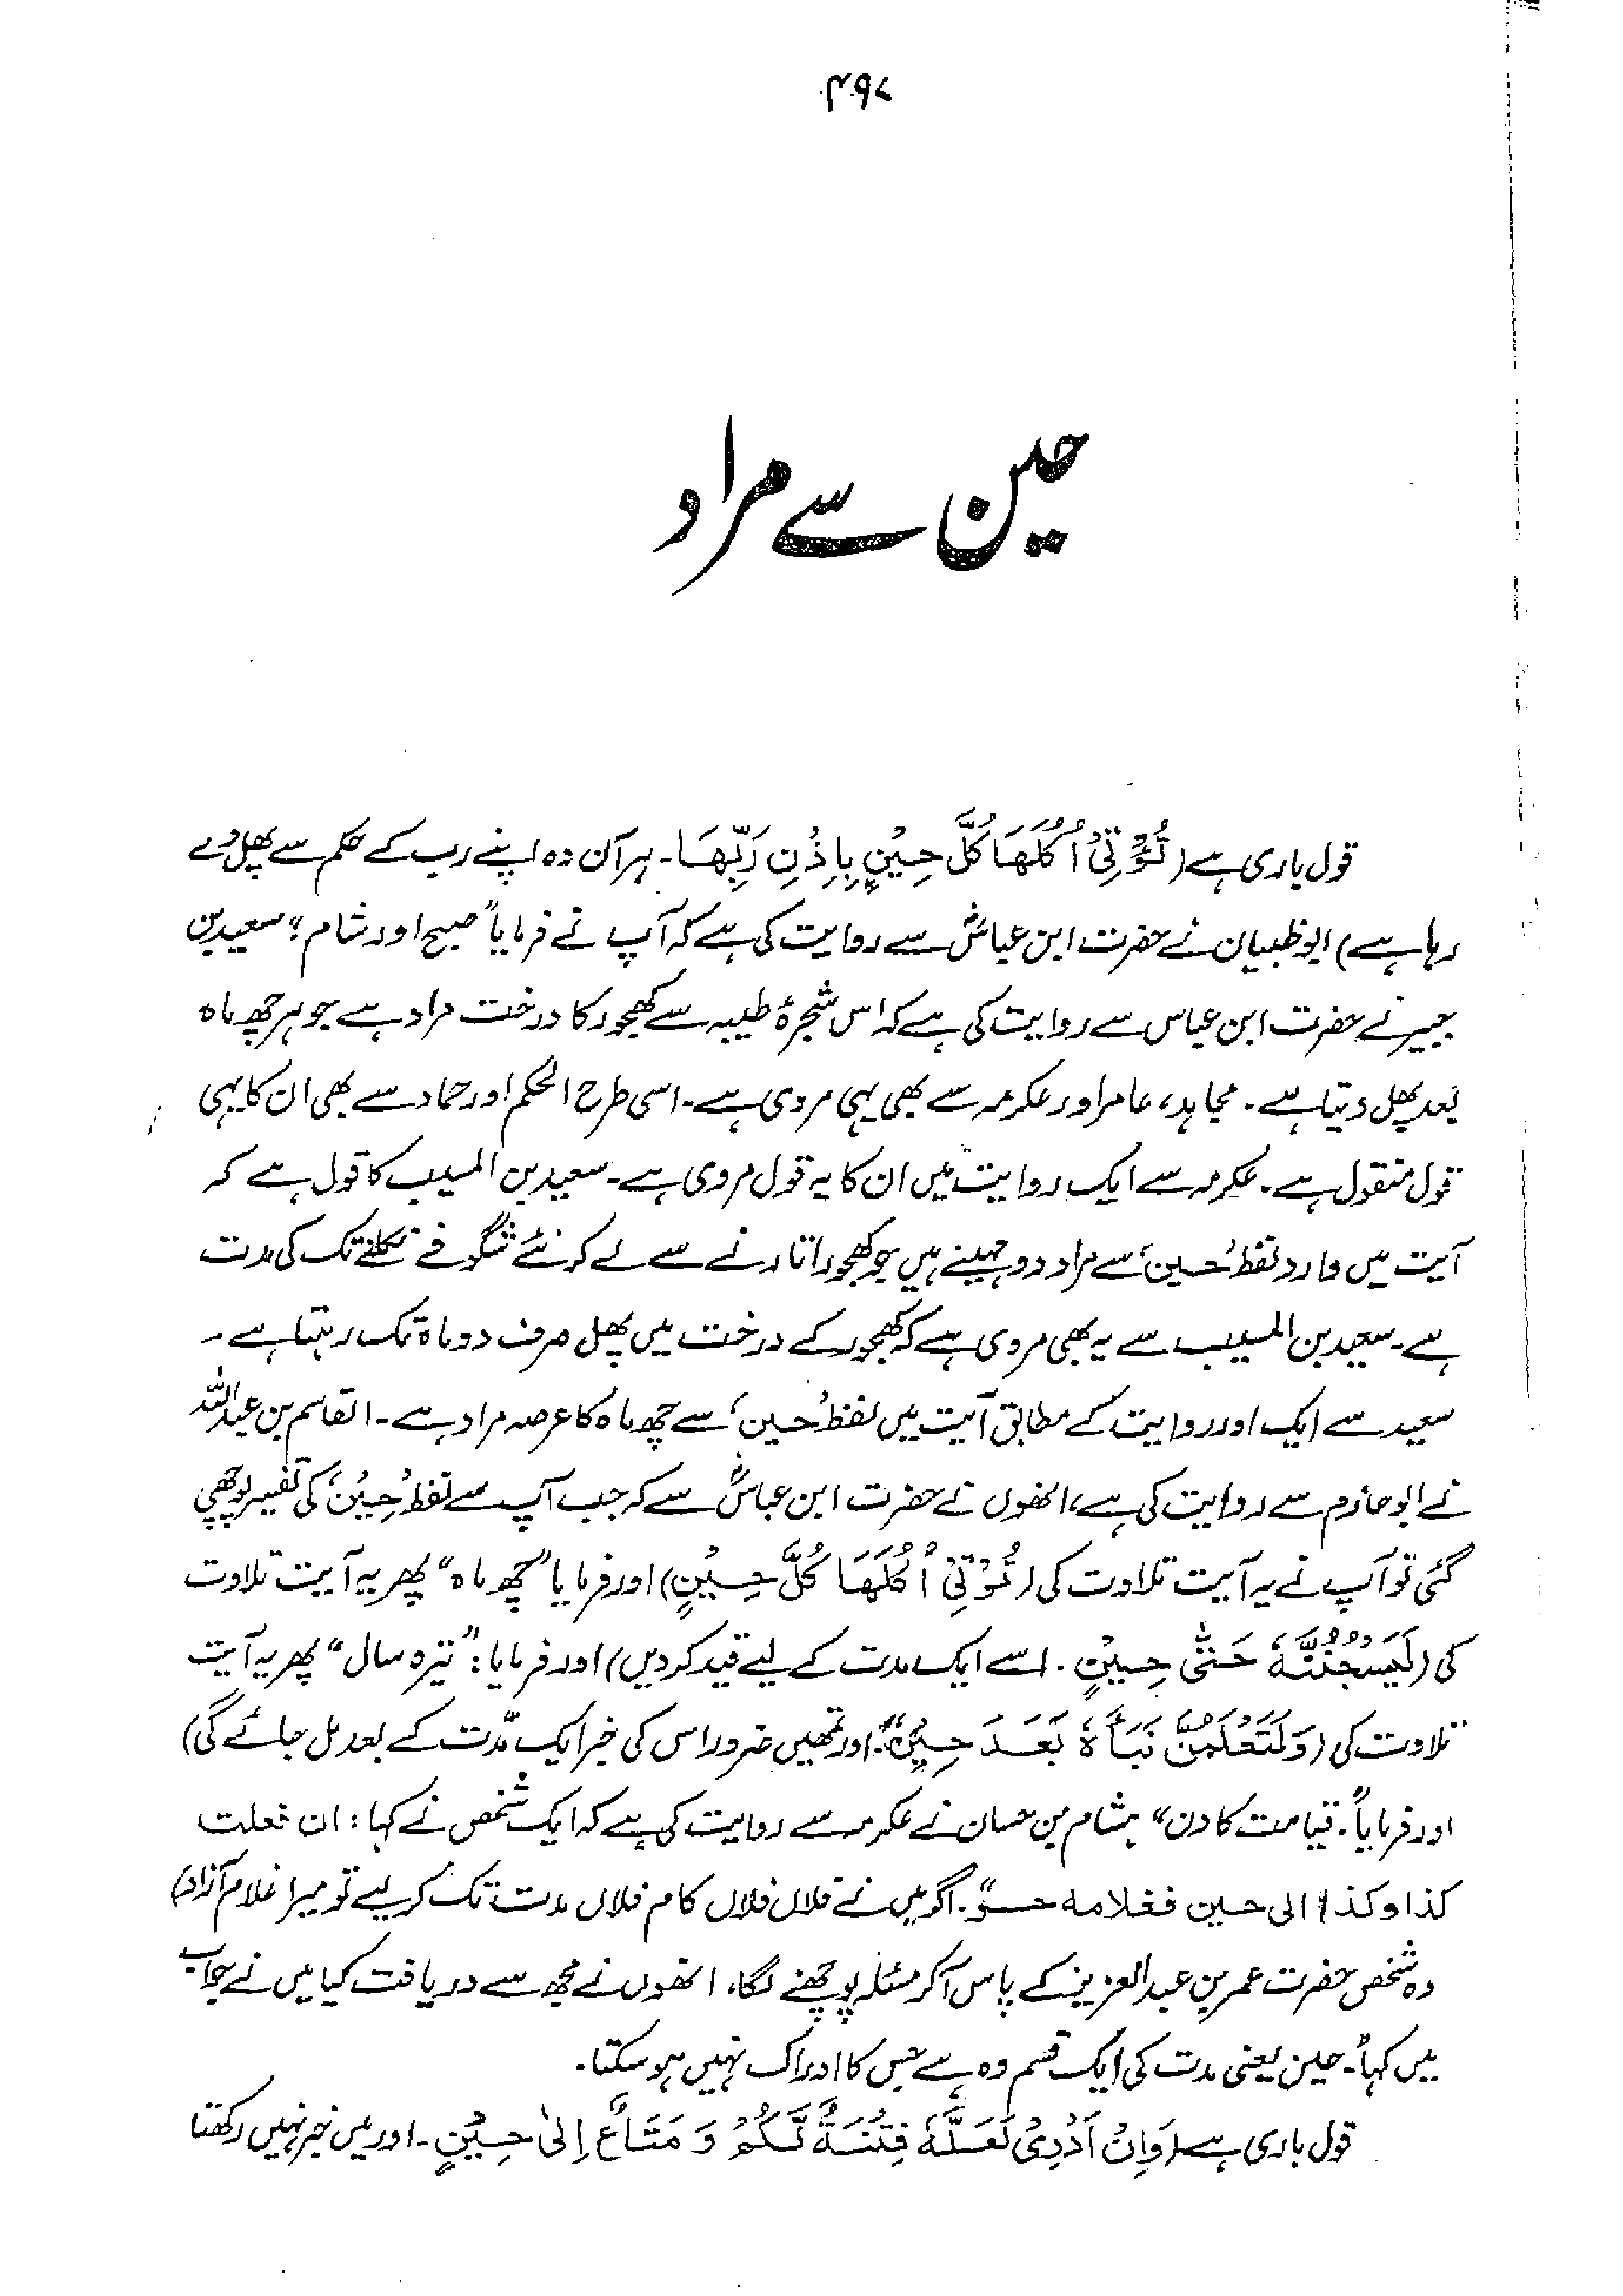 ۴۹۷
حین سے مراد
قول باری ہے (تُؤْتِیْ اُکُلَهَا کُلَّ حِیْنٍ بِاِذْنِ رَبِّهَا۔ ہر آن وہ اپنے رب کے حکم سے پھل دے
رہا ہے) ابوظبیان نے حضرت ابن عباسؓ سے روایت کی ہے کہ آپ نے فرمایا "صبح اور شام" سعید بن
جبیر نے حضرت ابن عباس سے روایت کی ہے کہ اس شجرۂ طیبہ سے کھجور کا درخت مراد ہے جو ہر چھ ماہ
بعد پھل دیتا ہے۔ مجاہد، عامر اور عکرمہ سے بھی یہی مروی ہے۔ اسی طرح الحکم اور حماد سے بھی ان کا یہی
قول منقول ہے۔ عکرمہ سے ایک روایت میں ان کا یہ قول مروی ہے۔ سعید بن المسیب کا قول ہے کہ
آیت میں وارد لفظ 'حین' سے مراد دو مہینے ہیں جو کھجور اتارنے سے لے کر نئے شگوفے نکلنے تک کی مدت
ہے۔ سعید بن المسیب سے یہ بھی مروی ہے کہ کھجور کے درخت میں پھل صرف دو ماہ تک رہتا ہے۔
سعید سے ایک اور روایت کے مطابق آیت میں لفظ 'حین' سے چھ ماہ کا عرصہ مراد ہے۔ القاسم بن عبداللہ
نے ابوحازم سے روایت کی ہے، انھوں نے حضرت ابن عباسؓ سے کہ جب آپ سے لفظ 'حِیْن' کی تفسیر پوچھی
گئی تو آپ نے یہ آیت تلاوت کی (تُؤْتِیْ اُکُلَهَا کُلَّ حِیْنٍ) اور فرمایا "چھ ماہ" پھر یہ آیت تلاوت
کی (لَیَسْجُنُنَّهٗ حَتّٰی حِیْنٍ۔ اسے ایک مدت کے لیے قید کر دیں) اور فرمایا: "تیرہ سال" پھر یہ آیت
تلاوت کی (وَلَتَعْلَمُنَّ نَبَأَهٗ بَعْدَ حِیْنٍ۔ اور تمھیں ضرور اس کی خبر ایک مدّت کے بعد مل جائے گی)
اور فرمایا "۔ قیامت کا دن" ہشام بن حسان نے عکرمہ سے روایت کی ہے کہ ایک شخص نے کہا: ان فعلت
کذا وکذا الی حین فغلامه حرٌ۔ اگر میں نے فلاں فلاں کام فلاں مدت تک کر لیے تو میرا غلام آزاد)
وہ شخص حضرت عمر بن عبدالعزیز کے پاس آکر مسئلہ پوچھنے لگا، انھوں نے مجھ سے دریافت کیا میں نے جواب
میں کہا "۔ حین یعنی مدت کی ایک قسم وہ ہے جس کا ادراک نہیں ہو سکتا۔
قول باری ہے (وَاِنْ اَدْرِیْ لَعَلَّهٗ فِتْنَةٌ لَّکُمْ وَ مَتَاعٌ اِلٰی حِیْنٍ۔ اور میں خبر نہیں رکھتا